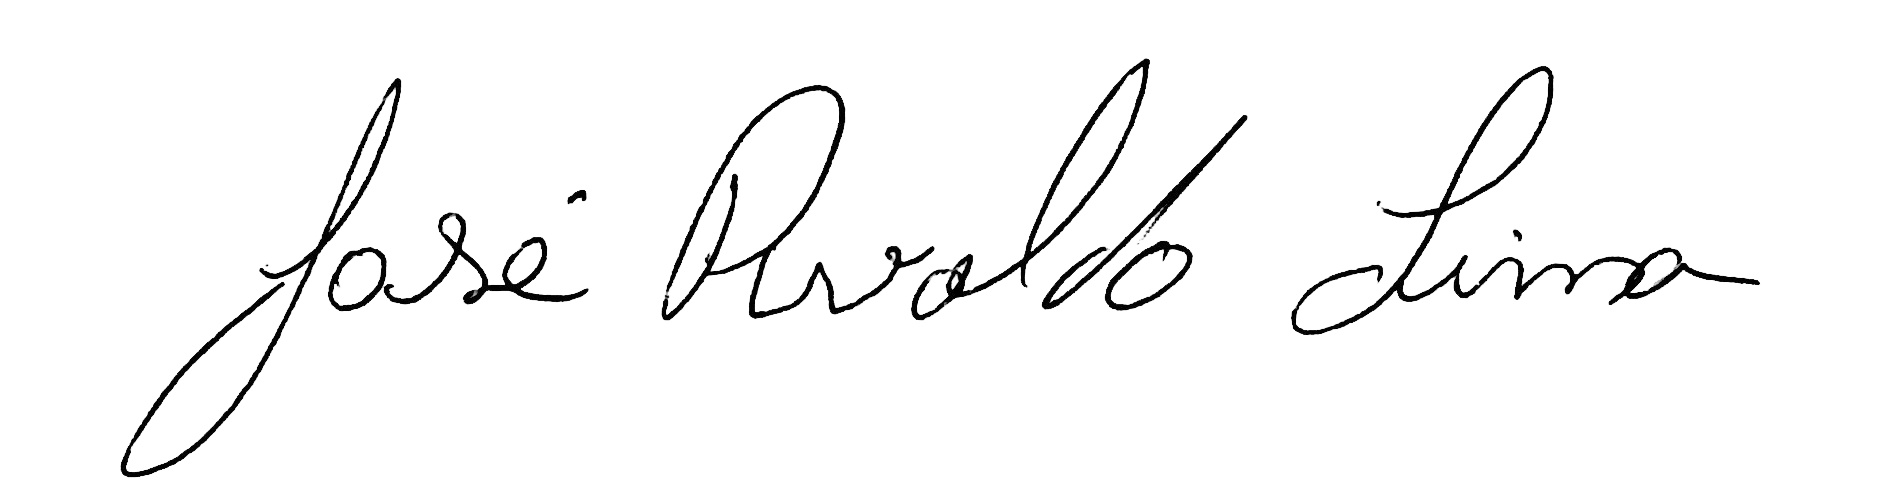 José Rivaldo Lima